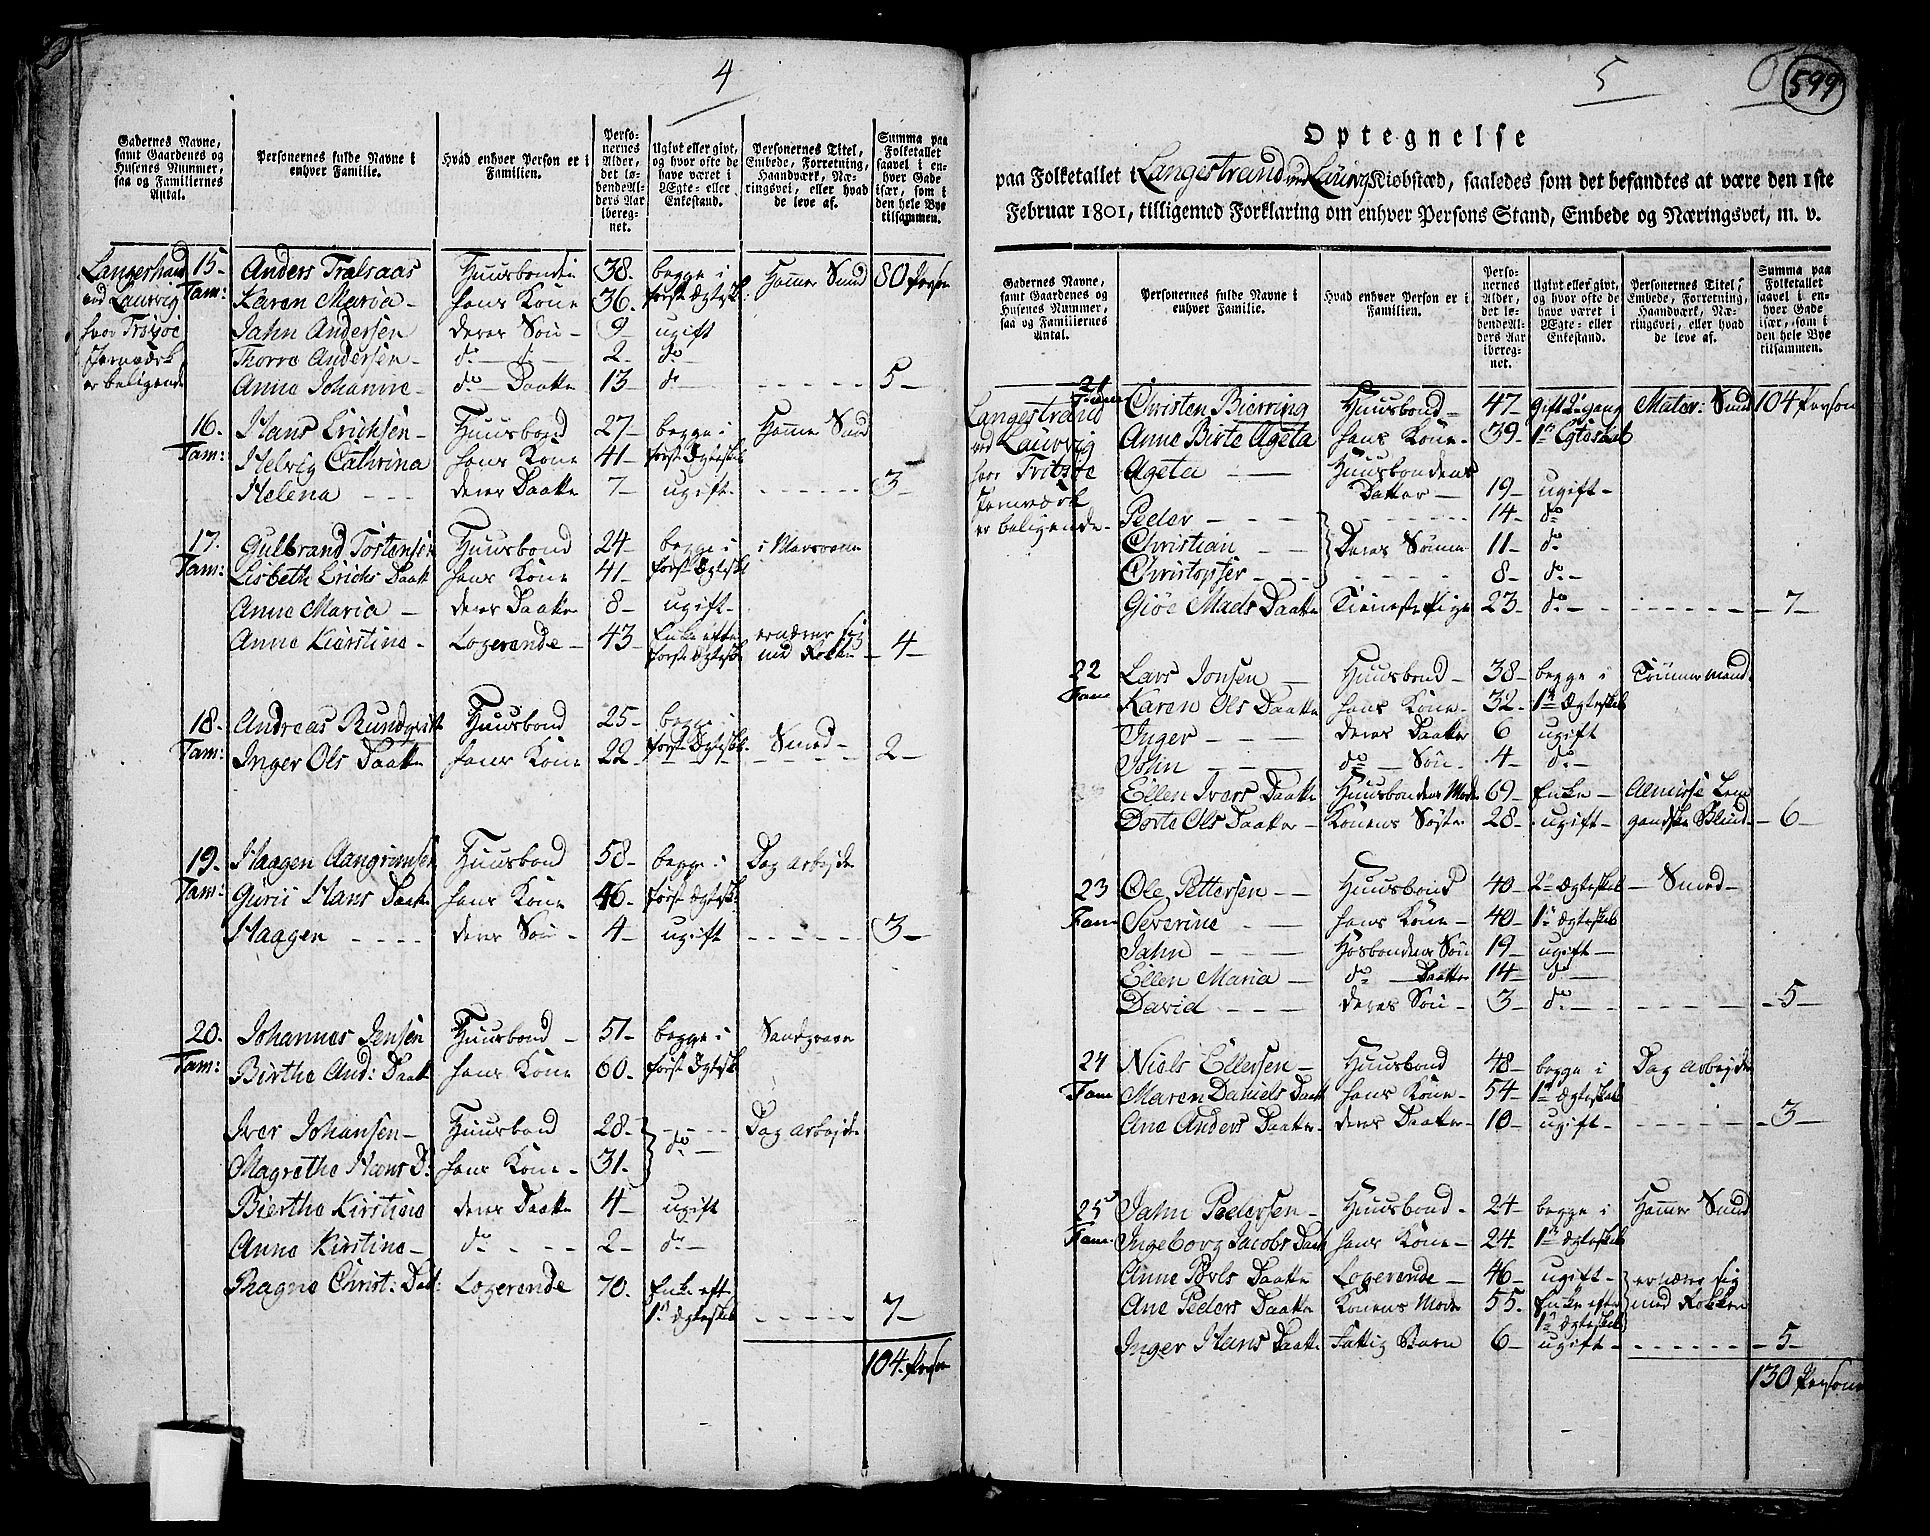 4
Gadernes Navne, samt Gaardenes og Husenes Nummer, saa og Familiernes Antal.
Personernes fulde Navne i enhver Familie.
Hvad enhver Person er i Familien.
Personernes Alder, det løbende Alders Aar iberegnet.
Ugivt eller givt, og hvor ofte de have været i Ægte- eller Enkestand.
Personernes Titel, Embede, Forretning, Haandværk, Næringsvei, eller hvad de leve af.
Summa paa Folketallet saavel i enhver Gade især, som i den hele Bye tilsammen.
Langestrand 15- Anders Huusbonde 38- begge i Hamer Smed 80 Person
ved Laurvig Fam: Karen Maria- hans Kone 36- første Ægtesk:
hvor Fritzøe Jahn Andersen deres Søn- 9 ugift
Jernværk Thorre Andersen- do - d- 2- do-
er beligende Anne Johanne- do- Daatter 13- do- 5-
16- Hans Erichsen- Huusbond 27- begge i Hamer Smed
Fam: Helvig Cathrina hans Kone 41- første Ægtesk
Helena - - - deres Daatter 7- ugift- 3-
17- Gulbrand Tostensen Huusbond 24- begge i i Marsovnen
Fam: Lisbeth Erichs Daatt hans Kone 41- første Ægtesk
Anne Maria - deres Daatter 8- ugift-
Anne Kierstine- Logerende- 43- Enke efter ernærer sig
første Ægtesk med Rokken -4-
18- Andreas Rundqvist Huusbond 25- begge i
Fam: Inger Ols Daatte hans Kone 22- første Ægtesk Smed- 2-
19- Haagen Aangrimsen Huusbond 58- begge i Dag arbejde
Fam: Gurii Hans Daatte hans Kone 46- første Ægtesk:
Haagen - - - - deres Søn- 4- ugift 3-
20- Johannes Jensen Huusbond- 51- begge i Sandgraver
Fam: Birthe And: Daatt hans Kone 60- første Ægtesk
Iver Johansen- Huusbond 28- Dag arbejde
Magrethe Hans D: hans Kone- 31- do-
Bierthe Kirstine deres Daatte 4- ugift
Anne Kirstine- do- - - - 2- do-
Ragne Christ: Dat: Logerende 70- Enke eft
1ste Ægteskab 7-
104 Person
5
599
Optegnelse
paa Folketallet i Langestrand ved Laurvig Kiøbstæd, saaledes som det befandtes at være den 1ste
Februar 1801, tilligemed Forklaring om enhver Persons Stand, Embede og Næringsvei, m. v.
Gadernes Navne, samt Gaardenes og Husenes Nummer, saa og Familiernes Antal.
Personernes fulde Navne i enhver Familie.
Hvad enhver Person er i Familien.
Personernes Alder, det løbende Alders Aar iberegnet.
Ugivt eller givt, og hvor ofte de have været i Ægte- eller Enkestand.
Personernes Titel, Embede, Forretning, Haandværk, Næringsvei, eller hvad de leve af.
Summa paa Folketallet saavel i enhver Gade især, som i den hele Bye tilsammen.
21 Fam
Langestrand Christen Bierring Huusbond- 47- Gift 2 gang Mater: Smed 104 Person
ved Laurvig Anne Birte Ageta hans Kone- 39- 1te Egteskab
hvor Fritzøe Ageta - - Huusbondens
Jernværk Datter- 19- ugift-
er beligende- Peder - - - 14- do
Christian - - Deres Sønne 11- do-
Christopfer- - - 8- do-
Giøe Mads Daatte Tieneste Pige 23- do- -7-
22 Lars Jonsen - Huusbond- 38- begge i Tømmermand
Fam Karen Ols Daatte hans Kone- 32- 1te Ægteskab
Inger - - - deres Daatter 6 ugift
John - - - do- Søn- 4- do-
Ellen Ivers Daatte Huusbondens Mode 69- Enke- Almisse Lem
Dorte Ols Daatter- Konens Søster 28- ugift- gandske Blind -6-
23 Ole Pettersen- Huusbond 40- 2de Ægteskab - Smed-
Fam Severine - - hans Kone- 40- 1te Ægteskab
Jahn - - - Hosbondens Søn 19- ugift-
Ellen Maria - do- Daatter 14- do-
David - - - deres Søn- 3- do- -5-
24 Niels Ellersen- Huusbond 48- begge i Dag arbejde
Fam Maren Daniels Daatt hans Kone- 54- 1te Ægteskab
Ane Anders Daatte- deres Daatter- 10- ugift- -3-
25 Jahn Pedersen- Huusbond- 24- begge i Hamer Smed
Fam Ingeborg Jacobs Daatt hans Kone- 24- 1te Ægteskab
Anne Povls Daatte Logerende- 46- ugift- ernære sig
Ane Peders Daatte Konens Mode 55- Enke efter med Rokken
1te Ægteskab
Inger Hans Daatte Fattig Barn 6- ugift- -5-
130 Persone